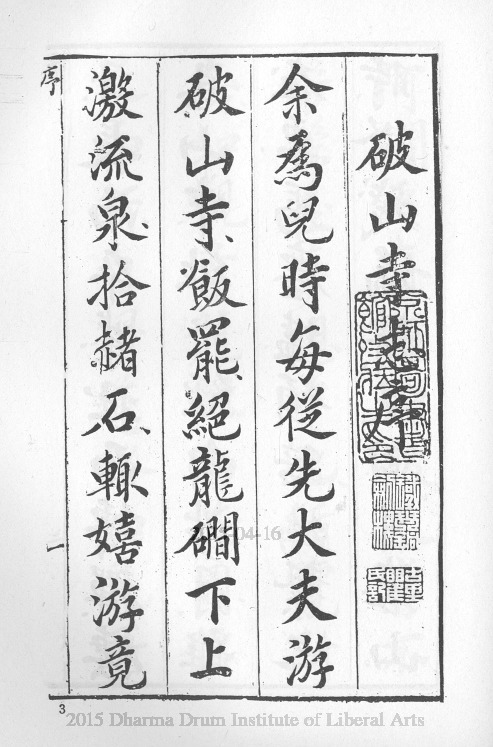 破山寺志序
余爲兒時每從先大夫游
破山寺飯罷絕龍磵下上
激流泉拾赭石輙嬉游竟
序
一
3
04-16
2015 Dharma Drum Institute of Liberal Arts